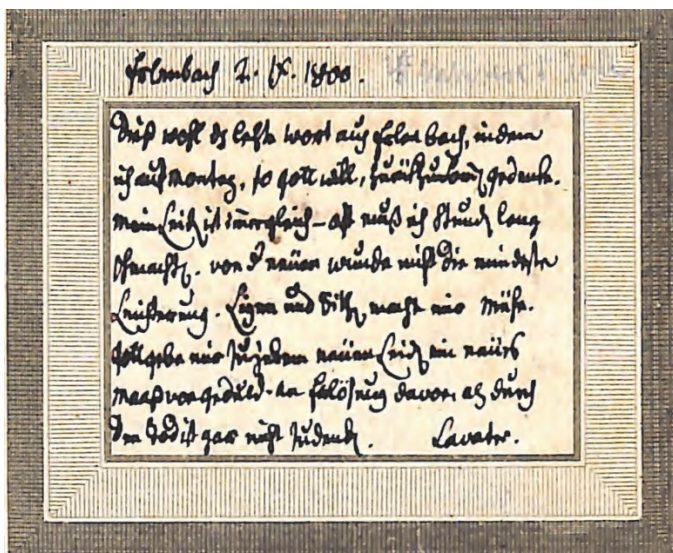 Erlenbach 2. IX. 1800.
Dieß wohl ds letzte wort auß Erlenbach, indem
ich auf Montag, so Gott will, zurückzukom̄en gedenke.
Mein Leiden ist im̄er gleich – oft muß ich Stunden lang
schmachten. von der neüen wunde nicht die mindeste
Leichterung. Ligen und Sitzen macht mir Mühe.
Gott gebe mir zu jedem neüen Leiden ein neües
maaß von Geduld – an Erlösung davon als durch
den Tod ist gar nicht zudenken. Lavater.